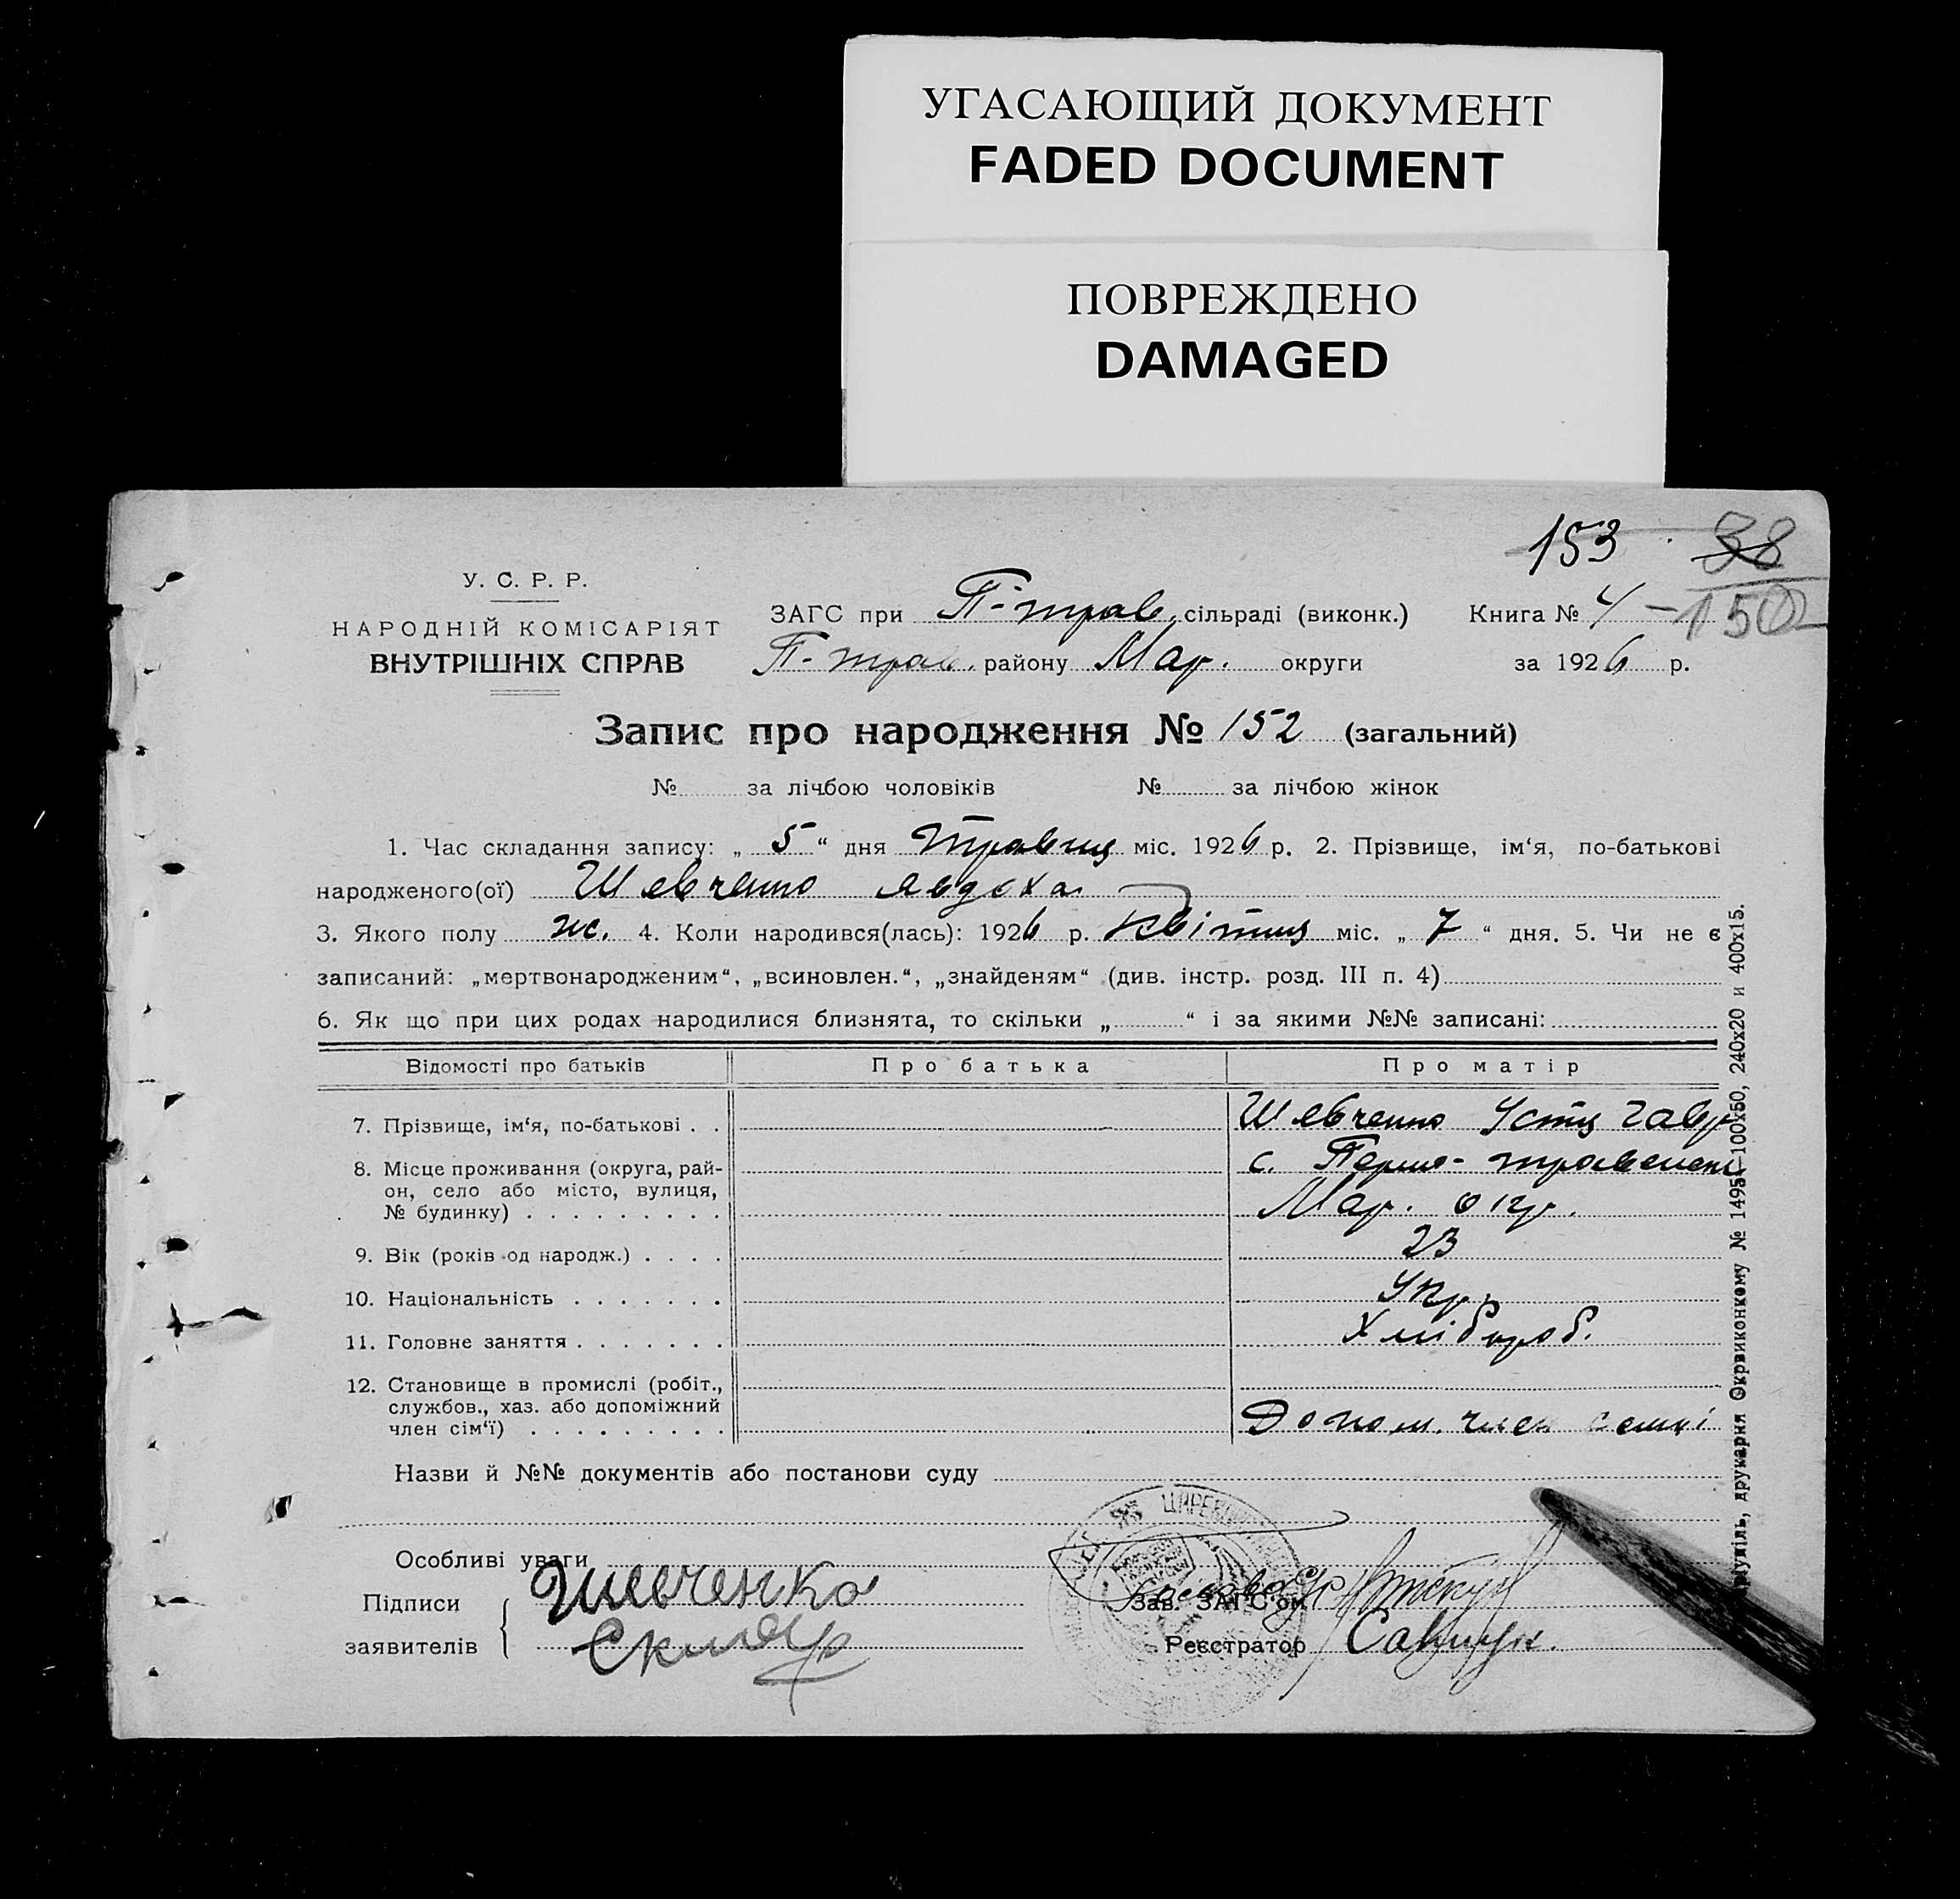 УГАСАЮЩИЙ ДОКУМЕНТ
FADED DOCUMENT
ПОВРЕЖДЕНО
DAMAGED
153 38
У. С. Р. Р.
НАРОДНІЙ КОМІСАРІЯТ
ВНУТРІШНІХ СПРАВ
ЗАГС при П-трав. сільраді (виконк.) Книга № 4 - 150
П-трав. району Мар. округи за 1926 р.
Запис про народження № 152 (загальний)
№ за лічбою чоловіків № за лічбою жінок
1. Час складання запису: „ 5 “ дня Травня міс. 1926 р. 2. Прізвище, ім‘я, по-батькові
народженого(ої) Шевченко Явдоха
3. Якого полу жс. 4. Коли народився(лась): 1926 р. Квітня міс. „ 7 “ дня. 5. Чи не є
записаний: „мертвонародженим“, „всиновлен.“, „знайденям“ (див. інстр. розд. III п. 4)
6. Як що при цих родах народилися близнята, то скільки „ “ і за якими №№ записані:
Відомості про батьків Про батька Про матір
7. Прізвище, ім‘я, по-батькові . . Шевченко Устя Гавр
8. Місце проживання (округа, рай-
он, село або місто, вулиця,
№ будинку) . . . . . . . . .
с. Перно-
Мар. окр.
9. Вік (років од народж.) . . . . 23
10. Національність . . . . . . . Укр.
11. Головне заняття . . . . . . . Хлібороб.
12. Становище в промислі (робіт.,
службов., хаз. або допоміжний
член сім‘ї) . . . . . . . . .
Допом. член семьі
Назви й №№ документів або постанови суду
Особливі уваги
Підписи
заявителів
Шевченко
Скляр
Зав. ЗАГС‘ом
Реєстратор
друкарня Окрвиконкому № 14954—100х50, 240х20 и 400х15.